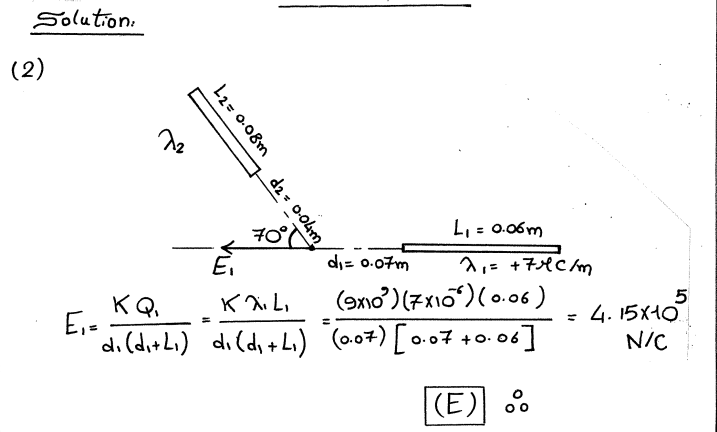 Solution:
(2)
L₂ = 0.08m
λ₂
d₂ = 0.04m
70°
L₁ = 0.06m
E₁
d₁ = 0.07m
λ₁ = +7μC/m
E₁ = KQ₁ / d₁(d₁+L₁) = Kλ₁L₁ / d₁(d₁+L₁) = (9x10⁹)(7x10⁻⁶)(0.06) / (0.07)[0.07+0.06] = 4.15x10⁵ N/C
(E)